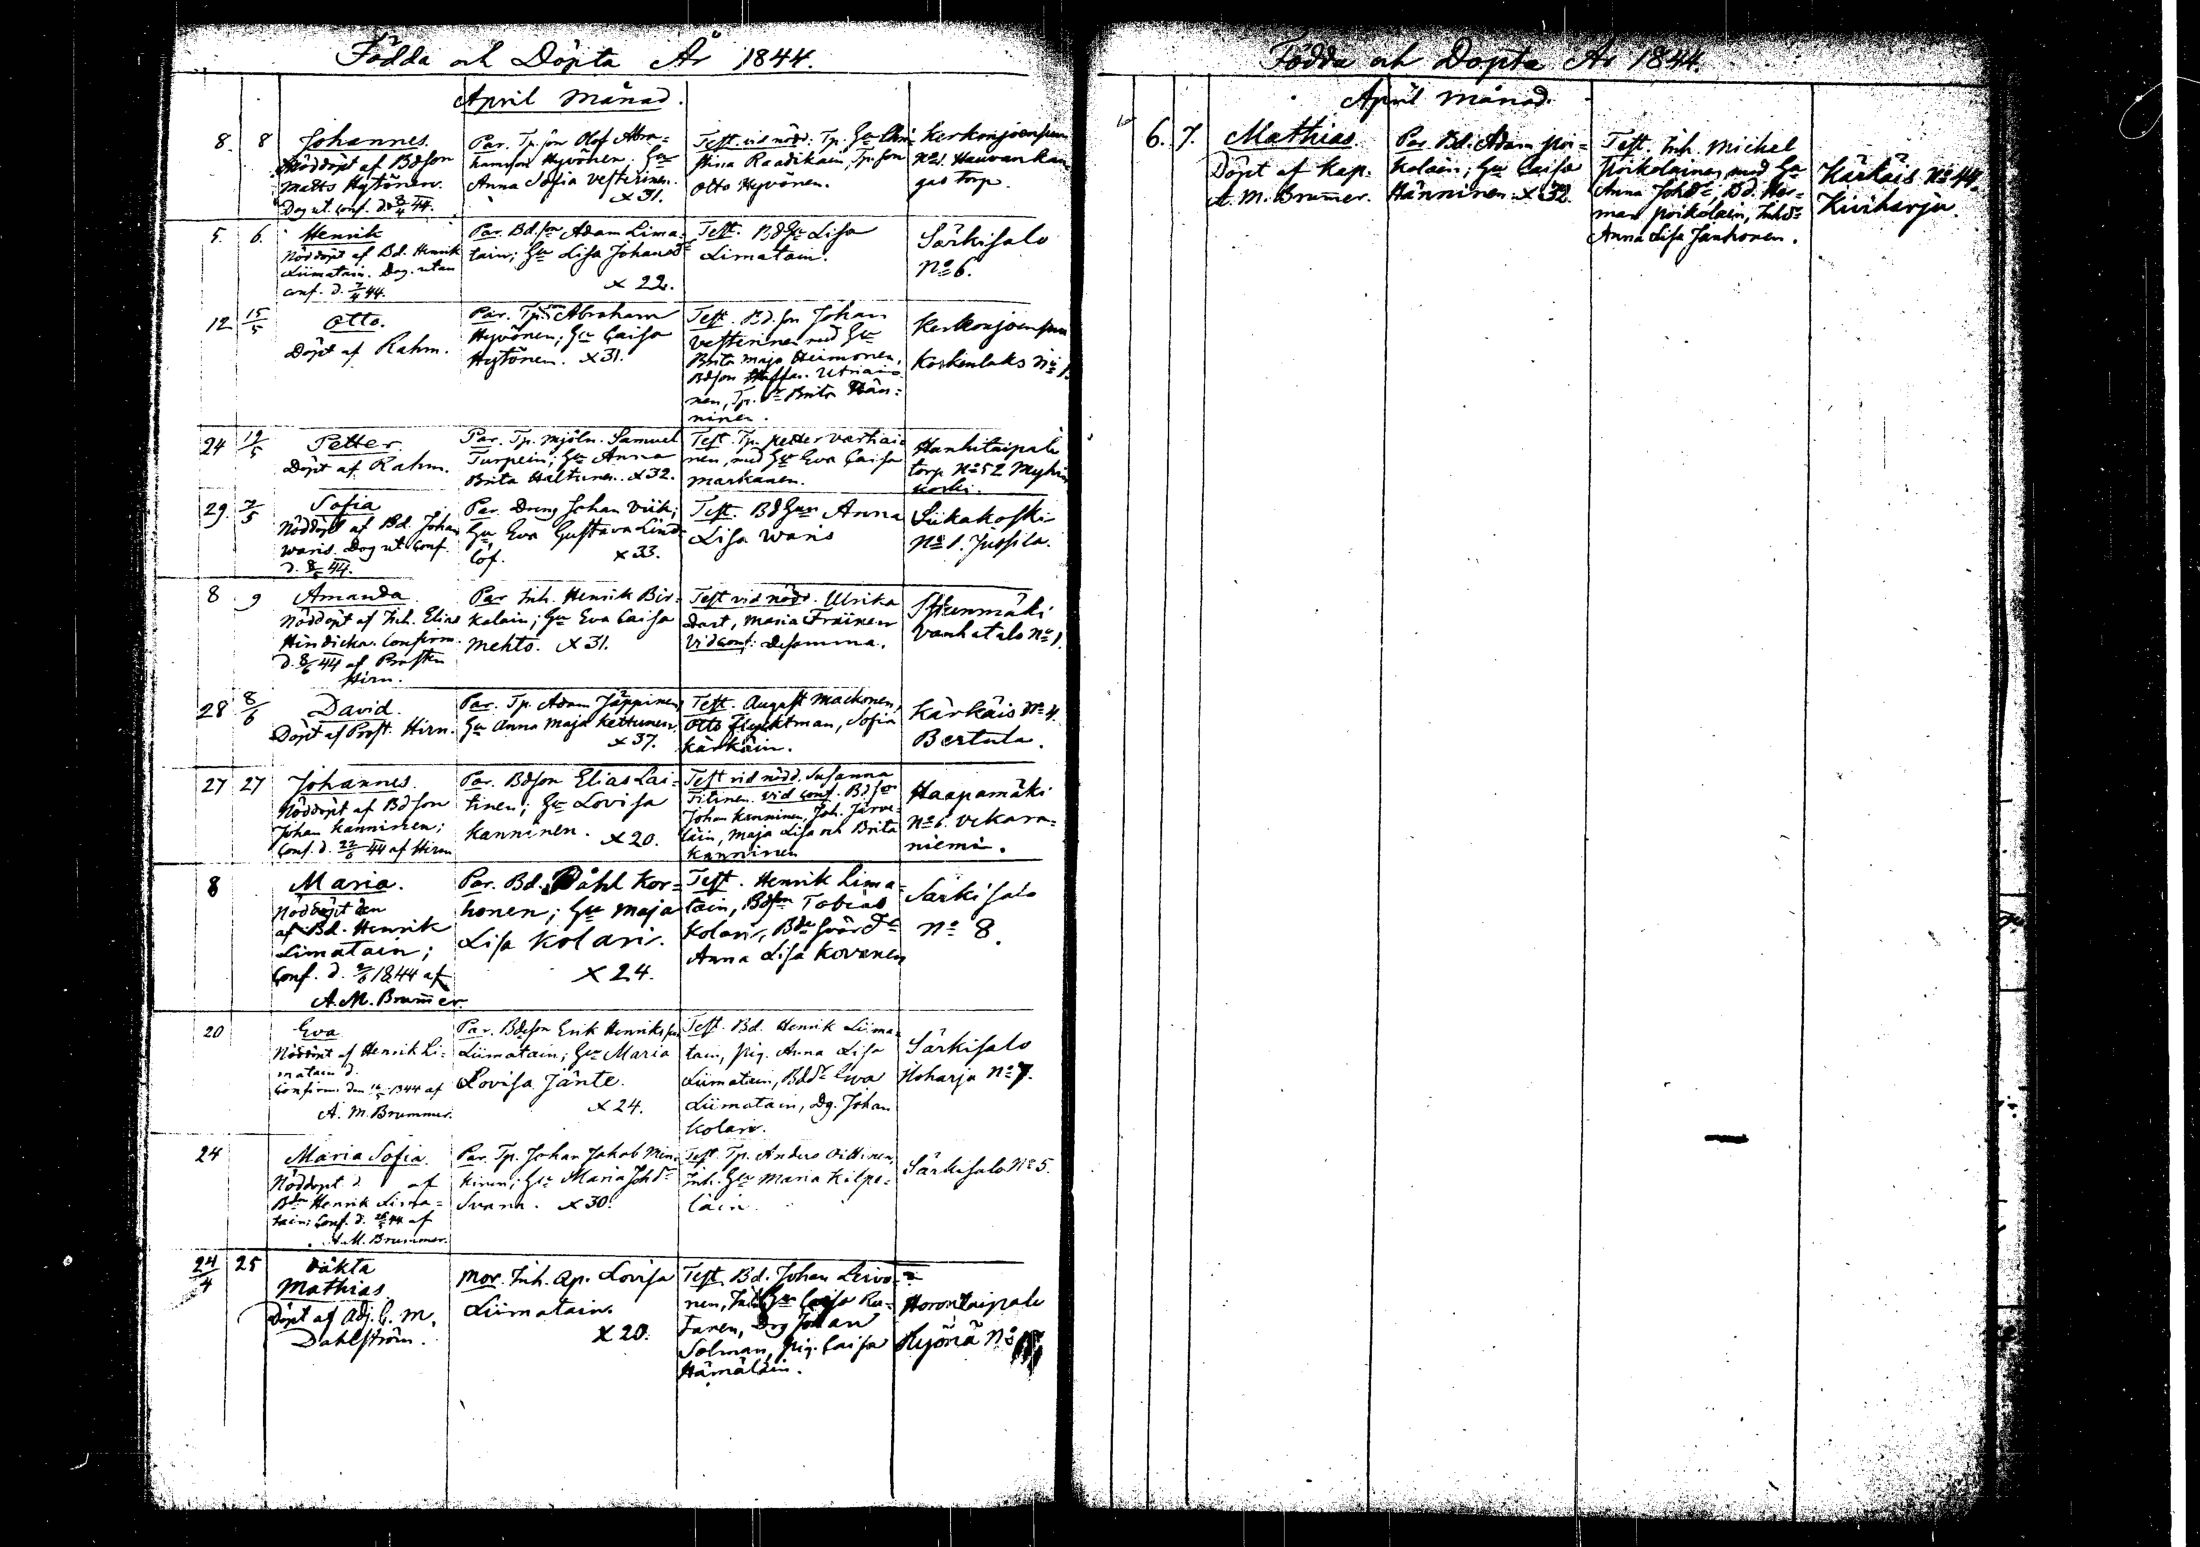 Födda och Döpta År 1844.
April Månad.
8. 8 Johannes.
Nöddöpt af Bdson
Matts Hytönen.
Dog ut. conf. d. 8/4 44.
Par. Tp. son Olof Abra=
hamson Hyvönen; Hu
Anna Sofia Vesterinen.
x 31.
Test. vid nödd: Tp. Hu Chri
stina Raadikain, Tp. son
Otto Hyvönen.
Kerkonjoensuu
No 1. Hauvankan
gas torp.
5. 6. Henrik
Nöddöpt af Bd. Henrik
Liimatain. Dog utan
conf. d. 7/4 44.
Par. Bd. son Adam Lima=
tain; Hu Lisa Johansdr
x 22.
Test. Bd Hu Lisa
Limatain.
Särkisalo
No 6.
12 15/5 Otto.
Döpt af Rahm.
Par. Tp. son Abraham
Hyvönen; Hu Caisa
Hytönen. x 31.
Test. Bd. son Johan
Vesterinen med Hu
Brita Maja Heimonen,
Bdson Staffan Utriai=
nen, Tp. dr Brita Hän=
ninen.
Kerkonjoensuu
Koskenlaks No 1.
24 19/5 Petter.
Döpt af Rahm.
Par. Tp. mjöln. Samuel
Turpein; Hu Anna
Brita Haltunen. x 32.
Test. Tp. Petter Vartiai
nen, med Hu Eva Caisa
Markanen.
Hanhitaipale
torp No 52 Myhin
koski.
29. 7/5 Sofia
Nöddöpt af Bd. Johan
Waris. Dog ut. conf.
d. 8/5 44.
Par. Dreng Johan Viik;
Hu Eva Gustava Lind=
löf. x 33.
Test. Bd Hun Anna
Lisa Waris
Liikakoski
No 1. Jussila.
8 9 Amanda
Nöddöpt af Inh. Elias
Hindicka. Confirm.
d. 8/6 44 af Prosten
Hirn.
Par. Inh. Henrik Bir=
kalain; Hu Eva Caisa
Mehto. x 31.
Test vid nödd. Ulrika
Dart, Maria Fräinen
Vid conf: Desamma.
Istunmäki
Vanhatalo No 1.
28 8/6 David.
Döpt af Prost. Hirn.
Par. Tp. Adam Jäppinen,
Hu Anna Maja Kettunen.
x 37.
Test. August Mackonen,
Otto Flycktman, Sofia
Kärkäin.
Kärkäis No 4.
Bertula.
27 27 Johannes.
Nöddöpt af Bdson
Johan Kanninen;
Conf. d. 22/6 44 af Hirn
Par. Bdson Elias Lai=
tinen; Hu Lovisa
Kanninen. x 20.
Test vid nödd. Susanna
Titinen. vid conf. Bdson
Johan Kanninen, Joh. Järve=
läin, Maja Lisa och Brita
Kanninen
Haapamäki
No 6. Vekara=
niemi.
8 Maria.
Nöddöpt den
af Bd. Henrik
Limatain;
Conf. d. 1844 af
A. M. Brummer.
Par. Bd. Påhl Kor=
honen; Hu Maja
Lisa Kolari.
x 24.
Test. Henrik Lima=
tain, Bdson Tobias
Kolari, Bde Svärdr
Anna Lisa Kovanen
Särkisalo
No 8.
20 Eva
Nöddöpt af Henrik Li=
matain d.
Confirm. den 1844 af
A. M. Brummer.
Par. Bdeson Erik Henriksson
Liimatain; Hu Maria
Lovisa Jänte.
x 24.
Test. Bd. Henrik Liima=
tain, pig. Anna Lisa
Liimatain, Bddr Ewa
Liimatain, Dg. Johan
Kolari.
Särkisalo
Iloharju No 7.
24 Maria Sofia.
Nöddöpt d. af
Bdn Henrik Lima=
tain; Conf. d. 44 af
A. M. Brummer.
Par. Tp. Johan Jakob Min=
kinen; Hu Maria Johdr
Svann. x 30.
Test. Tp. Anders Oittinen,
Inh. Hu Maria Kilpe=
läin.
Särkisalo No 5.
24/4 25 oäkta
Mathias
Döpt af Adj. C. M.
Dahlström.
Mor. Inh. Ap. Lovisa
Liimatain.
x 20.
Test. Bd. Johan Leivo=
nen, Inh Hu Caisa Ru=
tanen, Drg Johan
Solman, pig. Caisa
Hämäläin.
Horontaipale
Ryönä No
Födda och Döpta År 1844.
April Månad.
6. 7. Mathias
Döpt af Kap.
A. M. Brummer.
Par. Bd. Adam Poi=
kolain; Hu Caisa
Hänninen. x 32.
Test. Inh. Michel
Poikolainen med Hu
Anna Johdr; Bd. Her=
man Poikolain, Inhdr
Anna Lisa Janhonen.
Kärkäis No 44.
Kiviharju.